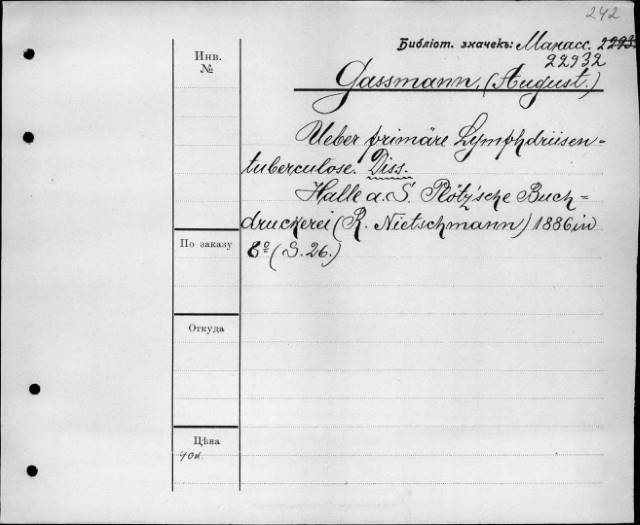 242
Библіот. значекъ: Манасс. 2293
22932
Инв.
№
Gassmann, (August.)
Ueber primäre Lymphdrüsen-
tuberculose. Diss.
Halle a. S. Plötz'sche Buch=
druckerei (R. Nietschmann) 1886 in
8º (S. 26.)
По заказу
Откуда
Цѣна
40к